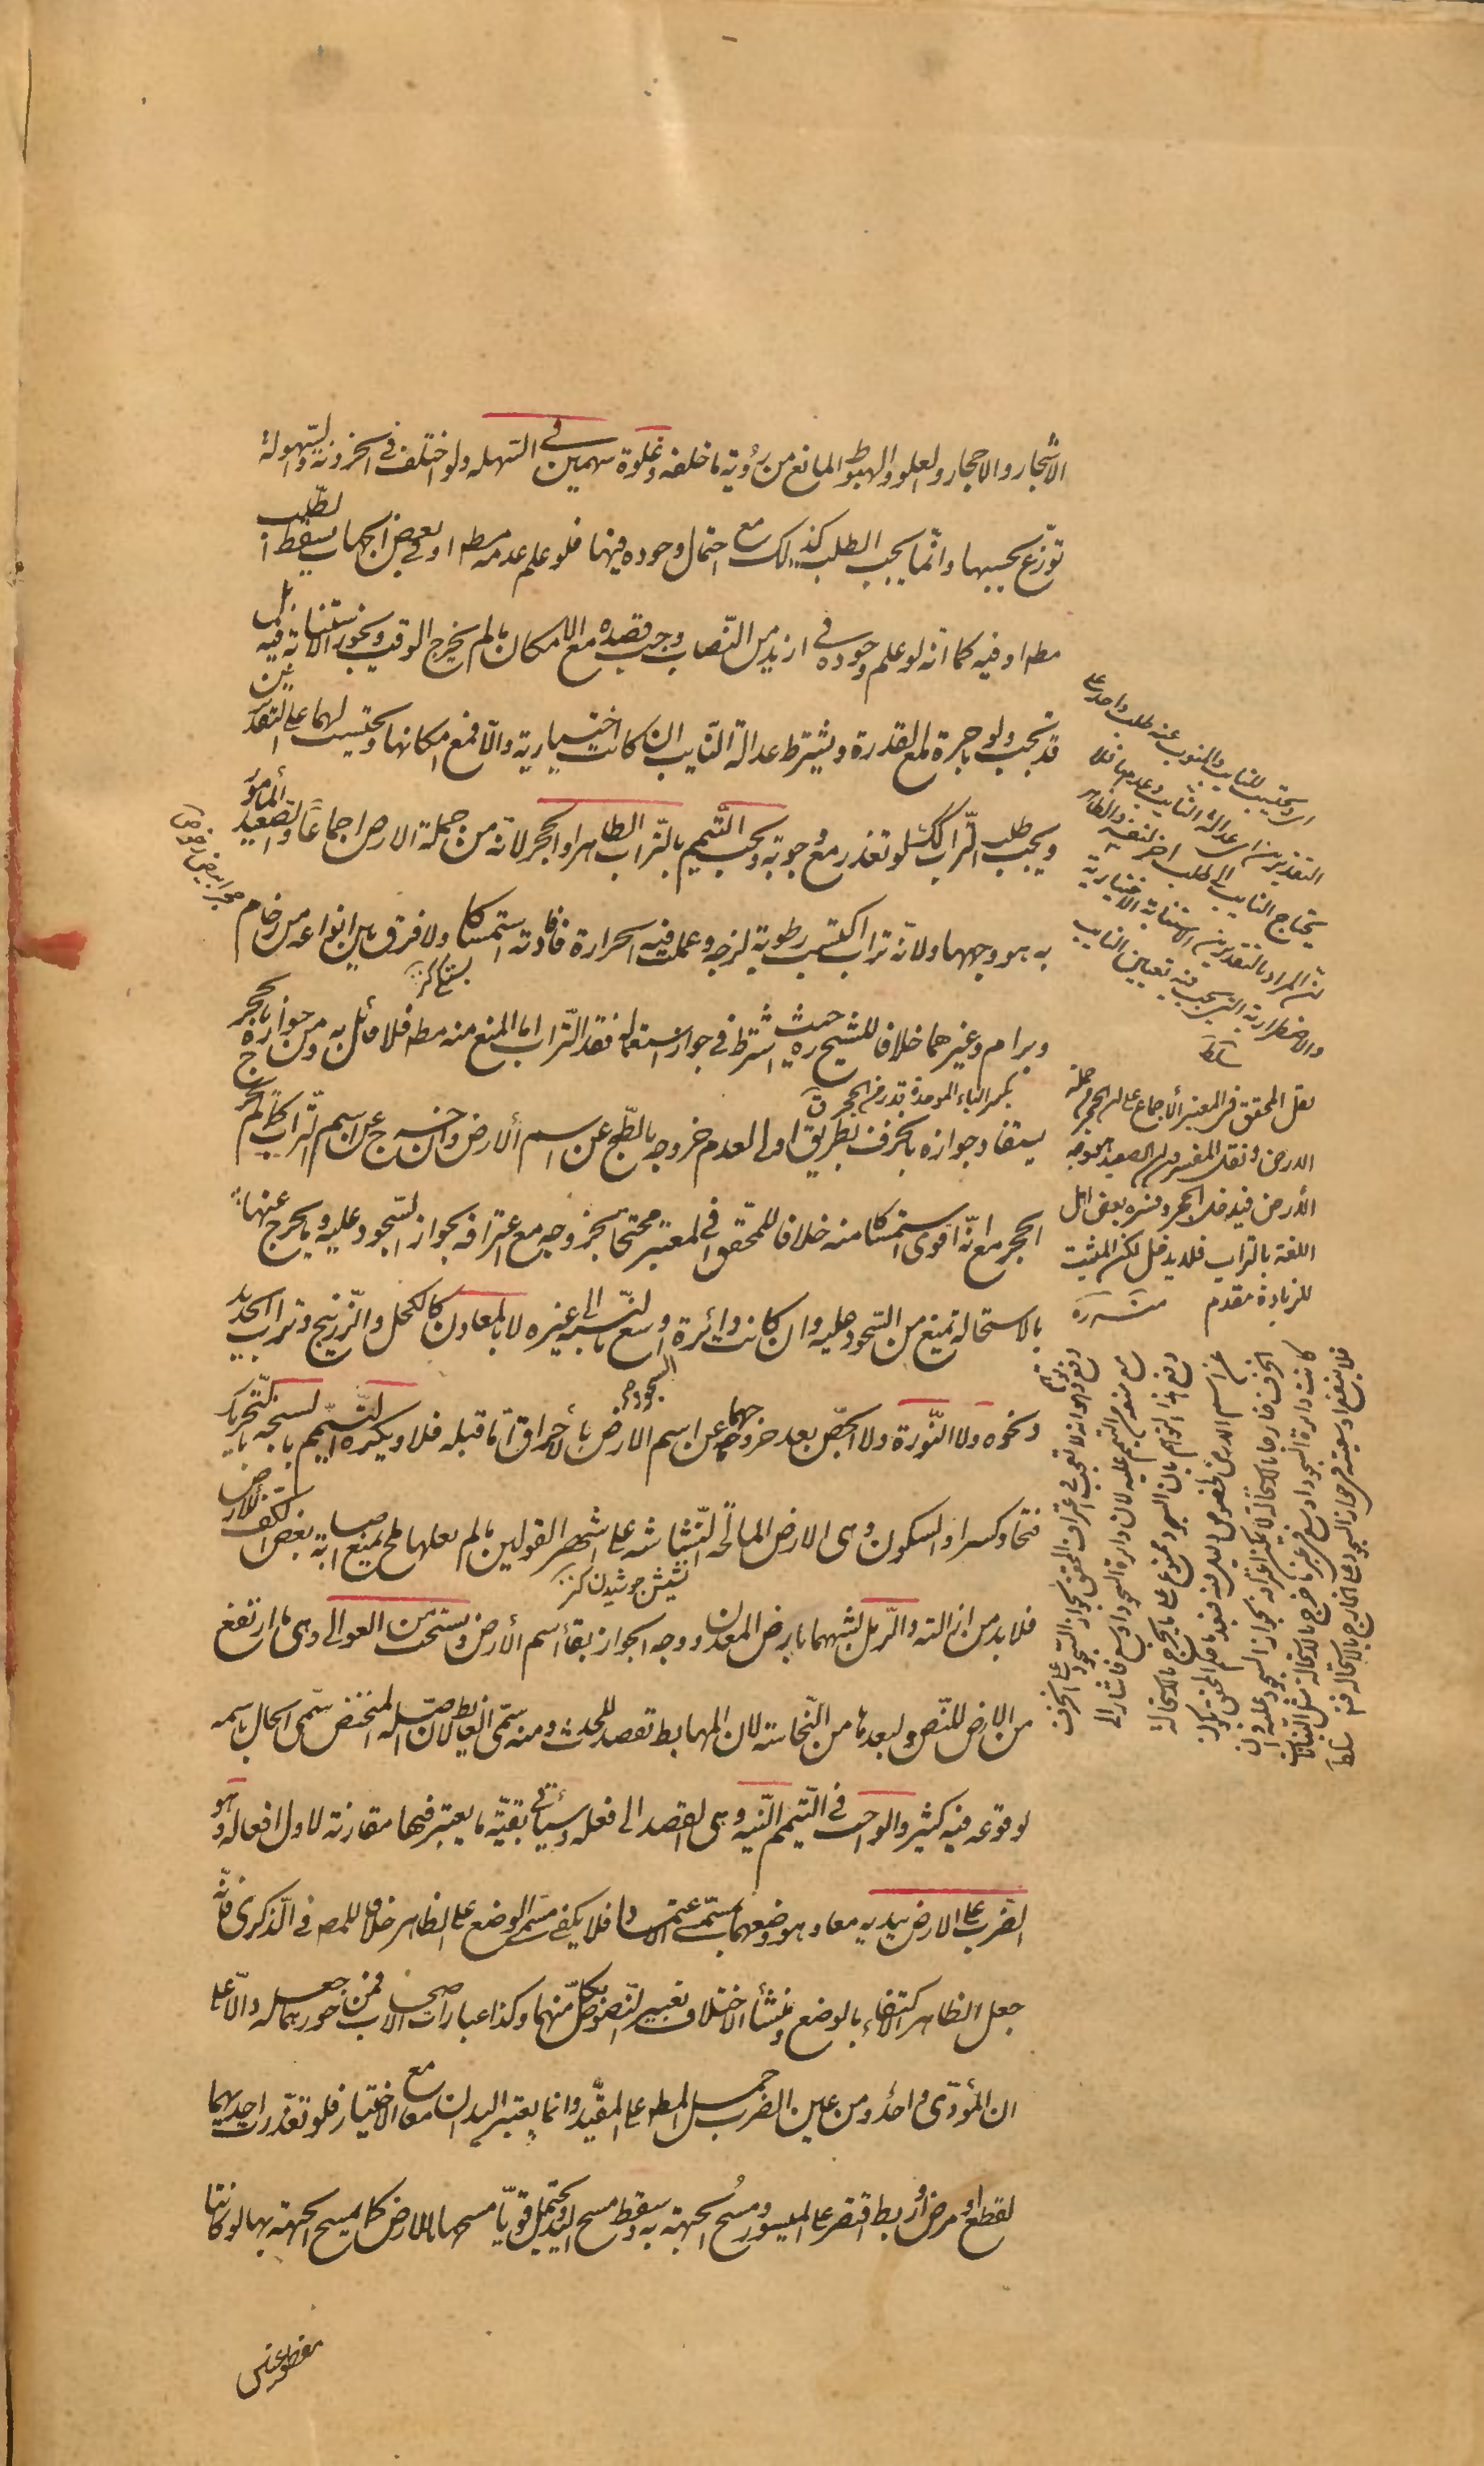 الاشجار والاحجار والعلو والهبوط المانع من رؤية ما خلفه وغلوة سهمين في السهله ولو اختلف في الحزونة والسهولة
توزع بحسبهما وانما يجب الطلب كذلك مع احتمال وجوده فيها فلو علم عدمه مطه او في بعض الجهات يسقط الطلب
مطه او فيه كما انه لو علم وجوده في ازيد من النصاب وجب قصده مع الامكان ما لم يخرج الوقت ويجوز الاستنابة فيه بل
قد تجب ولو باجرة مع القدرة ويشترط عدالة النايب ان كانت اختيارية والا فمع امكانها ويحتسب لهما على التقديرين
ويجب طلب التراب كذلك لو تعذر مع وجوبه ويجب التيمم بالتراب الطاهر او الحجر لانه من جملة الارض اجماعا والصعيد المأمور
به هو وجهها ولانه تراب اكتسب رطوبة لزجه وعملت فيه الحرارة فافادته استمساكا ولا فرق بين انواعه من رخام
وبرام وغيرهما خلافا للشيخ ره حيث اشترط في جواز استعماله فقد التراب اما المنع منه مطه فلا قائل به ومن جوازه بالحجر
يستفاد جوازه بالخزف بطريق اولى لعدم خروجه بالطبخ عن اسم الارض وان خرج عن اسم التراب كما لم يخرج
الحجر مع انه اقوى استمساكا منه خلافا للمحقق في المعتبر محتجا بخروجه مع اعترافه بجواز السجود عليه وما يخرج عنها
بالاستحالة يمنع من السجود عليه وان كانت دائرة اوسع بالنسبة الى غيره لا بالمعادن كالكحل والزرنيخ وتراب الحديد
ونحوه ولا النورة ولا الجص بعد خروجهما عن اسم الارض بالاحراق اما قبله فلا ويكره التيمم بالسبخه بالتحريك
فتحا وكسرا والسكون وهي الارض المالحة النشاشه على اشهر القولين ما لم يعلها ملح يمنع اصابة بعض الكف للارض
فلا بد من ازالته والرمل لشبههما بارض المعدن ووجه الجواز بقاء اسم الارض ويستحب من العوالي وهي ما ارتفع
من الارض للنص ولبعدها من النجاسة لان المهابط تقصد للحدث ومنه سمي الغايط لان اصله المنخفض سمى الحال باسمه
لوقوعه فيه كثيرا والواجب في التيمم النيه وهي القصد الى فعله وسيأتي بقية ما يعتبر فيها مقارنة لاول افعاله وهو
الضرب على الارض بيديه معا وهو وضعهما بمسمى الاعتماد فلا يكفي مسمى الوضع على الظاهر خلافا للمصه في الذكرى فانه
جعل الظاهر الاكتفاء بالوضع ومنشأ الاختلاف تعبير النصوص بكل منهما وكذا عبارات الاصحاب فمن جوزهما جعله دالا على
ان المؤدى واحد ومن عين الضرب حمل المطه على المقيد وانما يعتبر اليدان معا مع الاختيار فلو تعذرت احديهما
لقطع او مرض او ربط اقتصر على الميسور ومسح الجبهة به وسقط مسح اليد ويحتمل قويا مسحها بالارض كما يمسح الجبهة بها لو كانتا
مقطوعتين
اي ويحتسب للنايب والمنوب عنه طلب واحد على
التقديرين اي عدالة النايب وعدمها فلا
يحتاج النايب الى طلب اخر لنفسه والظاهر
ان المراد بالتقديرين الاستنابة الاختيارية
والاضطرارية التي يجب فيه تعيين النايب
سلط
نقل المحقق في المعتبر الاجماع على ان الحجر من جملة
الارض ونقل المفسرون ان الصعيد هو وجه
الارض فيدخل الحجر وفسره بعض اهل
اللغة بالتراب فلا يدخل لكن المثبت
للزيادة مقدم منه ره
بكسر الباء الموحدة قدر من الحجر ق
نشيش جوشيدن كنز